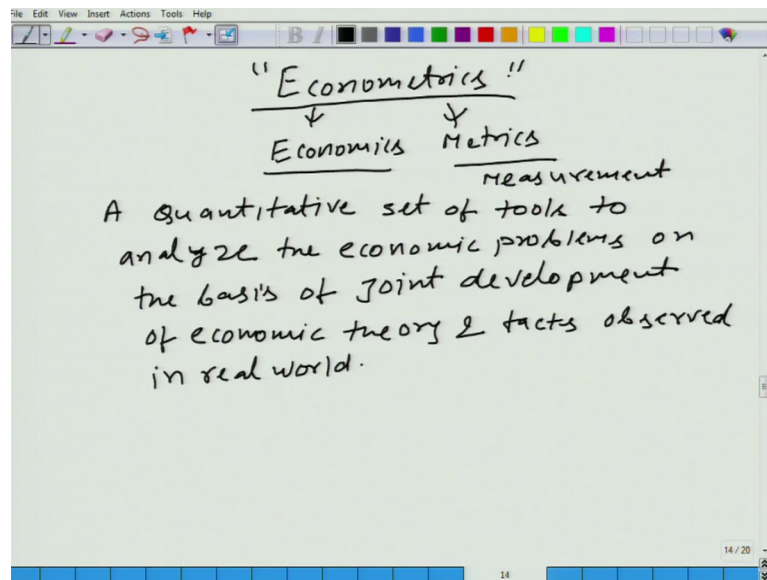 File Edit View Insert Actions Tools Help
B I
"Econometrics"
Economics Metrics
Measurement
A Quantitative set of tools to
analyze the economic problems on
the basis of Joint development
of economic theory & facts observed
in real world.
14 / 20
14